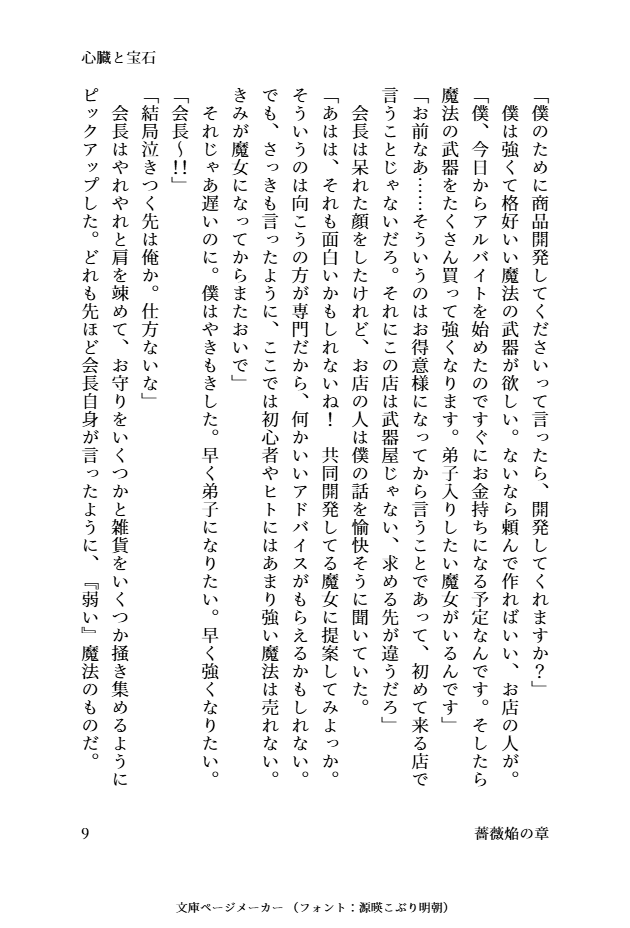 心臓と宝石
「僕のために商品開発してくださいって言ったら、開発してくれますか？」
　僕は強くて格好いい魔法の武器が欲しい。ないなら頼んで作ればいい、お店の人が。
「僕、今日からアルバイトを始めたのですぐにお金持ちになる予定なんです。そしたら
魔法の武器をたくさん買って強くなります。弟子入りしたい魔女がいるんです」
「お前なあ……そういうのはお得意様になってから言うことであって、初めて来る店で
言うことじゃないだろ。それにこの店は武器屋じゃない、求める先が違うだろ」
　会長は呆れた顔をしたけれど、お店の人は僕の話を愉快そうに聞いていた。
「あはは、それも面白いかもしれないね！　共同開発してる魔女に提案してみよっか。
そういうのは向こうの方が専門だから、何かいいアドバイスがもらえるかもしれない。
でも、さっきも言ったように、ここでは初心者やヒトにはあまり強い魔法は売れない。
きみが魔女になってからまたおいで」
　それじゃあ遅いのに。僕はやきもきした。早く弟子になりたい。早く強くなりたい。
「会長〜!!」
「結局泣きつく先は俺か。仕方ないな」
　会長はやれやれと肩を竦めて、お守りをいくつかと雑貨をいくつか掻き集めるように
ピックアップした。どれも先ほど会長自身が言ったように、『弱い』魔法のものだ。
薔薇焔の章
9
文庫ページメーカー（フォント：源暎こぶり明朝）